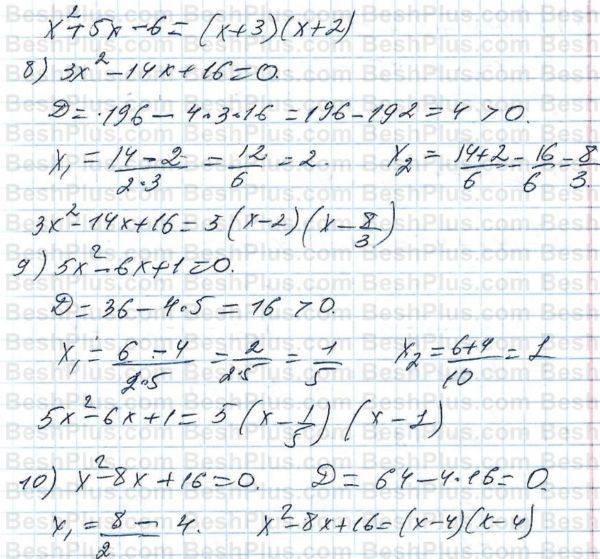 x²+5x-6=(x+3)(x+2)
8) 3x²-14x+16=0.
D=196-4·3·16=196-192=4>0.
x₁=(14-2)/(2·3)=12/6=2. x₂=(14+2)/6=16/6=8/3.
3x²-14x+16=3(x-2)(x-8/3)
9) 5x²-6x+1=0.
D=36-4·5=16>0.
x₁=(6-4)/(2·5)=2/(2·5)=1/5 x₂=(6+4)/10=1
5x²-6x+1=5(x-1/5)(x-1)
10) x²-8x+16=0. D=64-4·16=0.
x₁=8/2=4. x²-8x+16=(x-4)(x-4)